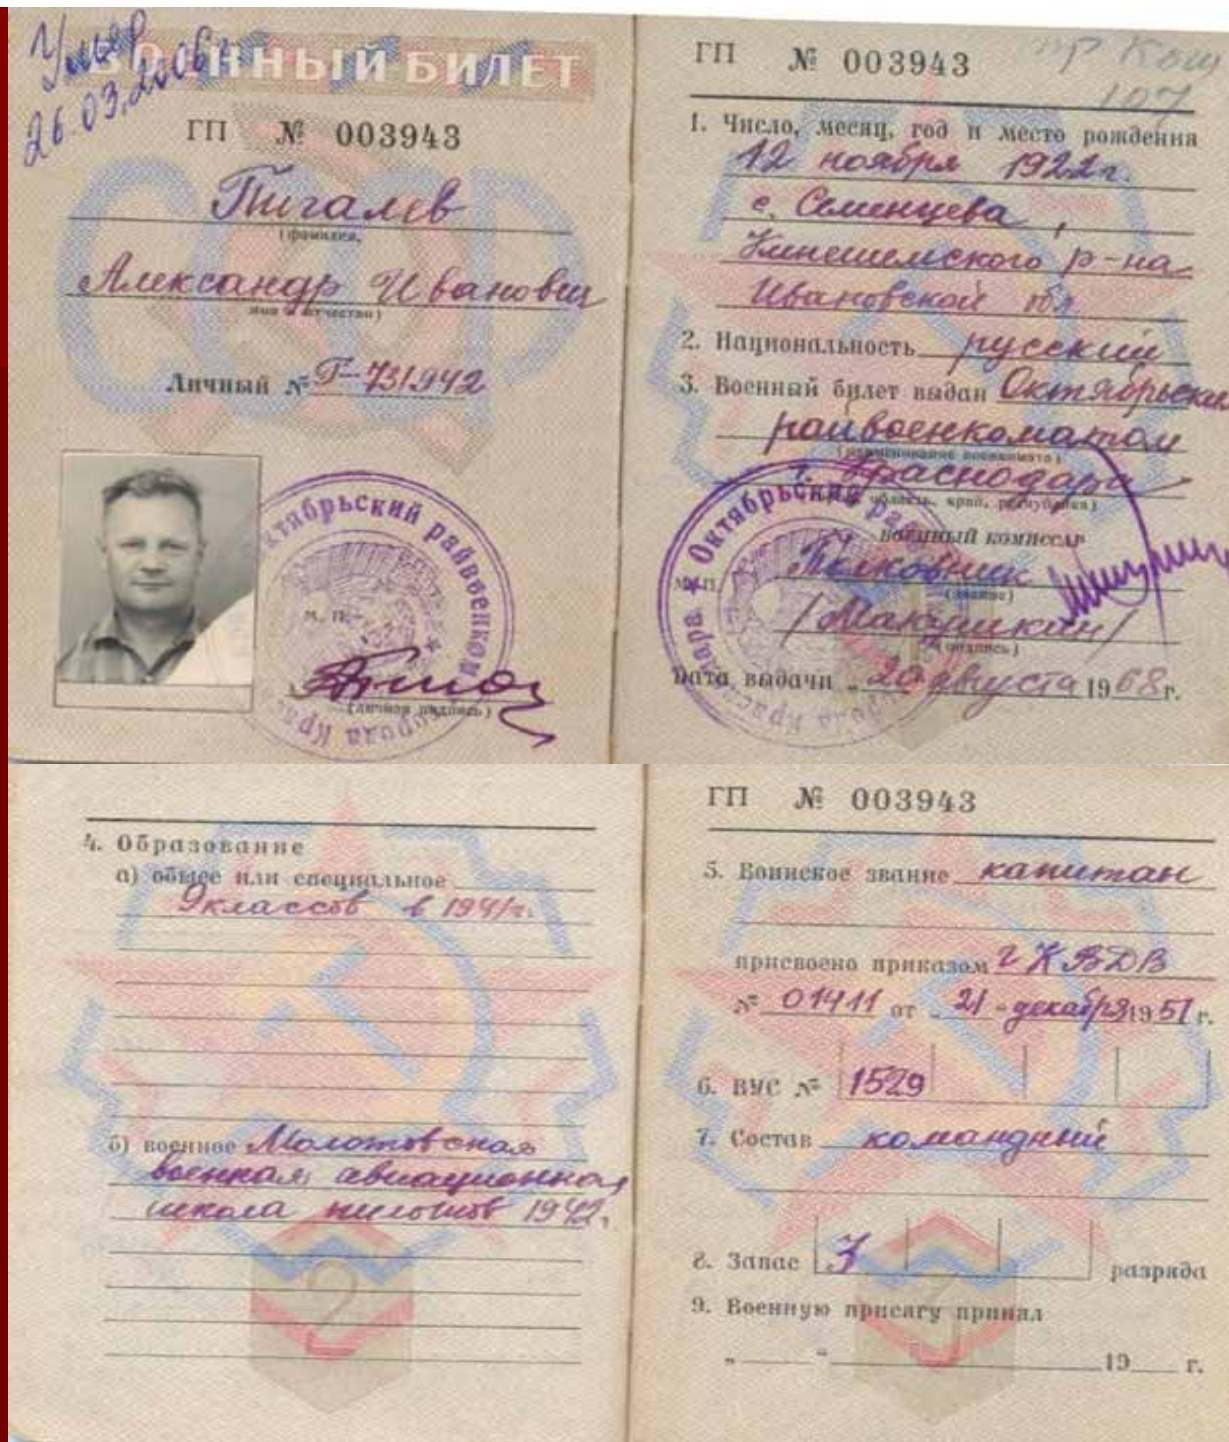 Умер
26.03.2006 г.
ВОЕННЫЙ БИЛЕТ
ГП № 003943
Пигалев
(фамилия,
Александр Иванович
имя и отчество)
Личный № Г-731942
Октябрьский райвоенком
города Крас
М. П.
(личная подпись)
ГП № 003943
107
1. Число, месяц, год и место рождения
12 ноября 1922 г.
с. Семенцева,
Кинешемского р-на
Ивановской обл
2. Национальность русский
3. Военный билет выдан Октябрьским
райвоенкоматом
(наименование военкомата)
г. Краснодара
область, край, республика)
ВОЕННЫЙ КОМИССАР
Полковник
М. П.
(звание)
/Макушкин/
(подпись)
Дата выдачи „20 августа 1968 г.
4. Образование
а) общее или специальное
9 классов в 1941 г.
б) военное Молотовская
военная авиационная
школа пилотов 1942 г.
ГП № 003943
5. Воинское звание капитан
присвоено приказом ГК ВДВ
№ 01411 от „21" декабря 1951 г.
6. ВУС № 1529
7. Состав командный
8. Запас 3 разряда
9. Военную присягу принял
„ " 19 г.